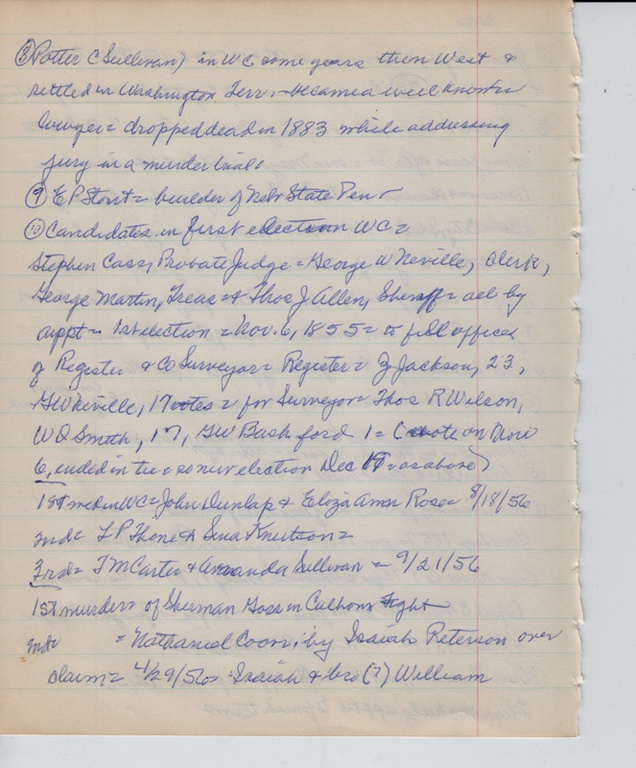 ⑧ Potter C Sullivan) in WC some years then West &
settled in Washington Terr. - became a well known
lawyer = dropped dead in 1883 while addressing
jury in a murder trial.
⑨ E P Stout = builder of Nebr State Pen -
⑩ Candidates in first election WC =
Stephen Cass, Probate Judge = George W Neville, Clerk,
George Martin, Treas = & Thos J Allen, Sheriff = all by
appt = 1st election = Nov. 6, 1855 = to fill offices
of Register & Co Surveyor = Register = Z Jackson, 23,
GW Neville, 17 votes = for Surveyor = Thos R Wilson,
W Q Smith, 17, GW Bashford 1 = (vote on Nov
6, ended in tie = so new election Dec as above)
1st wed in WC = John Dunlap & Eliza Ann Rose = 8/18/56
2nd = L P Thone & Sena Knutson =
3rd = T M Carter & Amanda Sullivan = 9/21/56
1st murder = of Sherman Goss in Calhoun fight
2nd = = Nathaniel Coon; by Isaiah Peterson over
claim = 4/29/56 Isaiah & bro (?) William